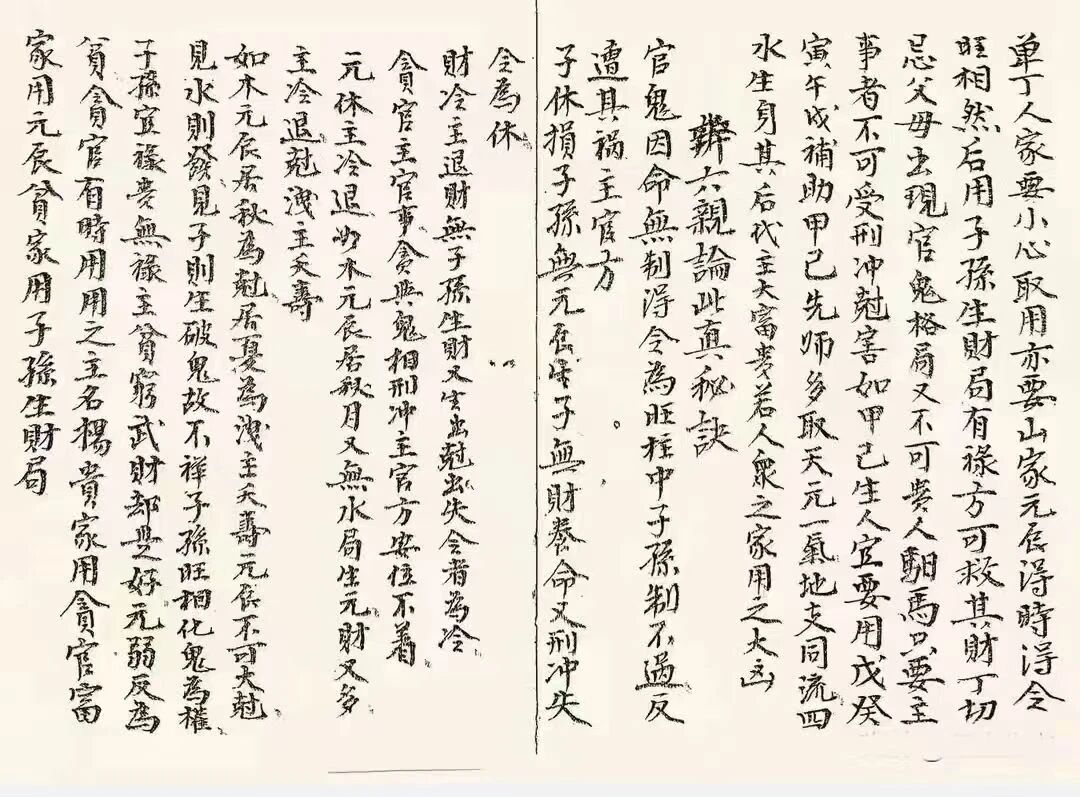 單丁人家要小心取用亦要山家元辰得時得令
旺相然后用子孫生財局有祿方可救其財丁切
忌父母出現官鬼格局又不可貴人馹馬只要主
事者不可受刑冲尅害如甲己生人宜要用戊癸
寅午戌補助甲己先师多取天元一氣地支同流四
水生身其后代主大富貴若人衆之家用之大凶
辦六親論此真秘訣
官鬼因命無制得令為旺柱中子孫制不過反
遭其禍主官方
子休損子孫無元辰生子無財養命又刑冲失
令為休
財冷主退財無子孫生財又生出尅出失令者為冷
貪官主官事貪與鬼相刑冲主官方安位不着
元休主冷退如木元辰居秋月又無水局生元財又多
主冷退尅洩主夭壽
如木元辰居秋為尅居夏為洩主夭壽元辰不可大尅
見水則發見子則生破鬼故不祥子孫旺相化鬼為權
子孫宜祿貴無祿主貧窮武財却是好元弱反為
貧貪官有時用用之主名楊貴家用貪官富
家用元辰貧家用子孫生財局